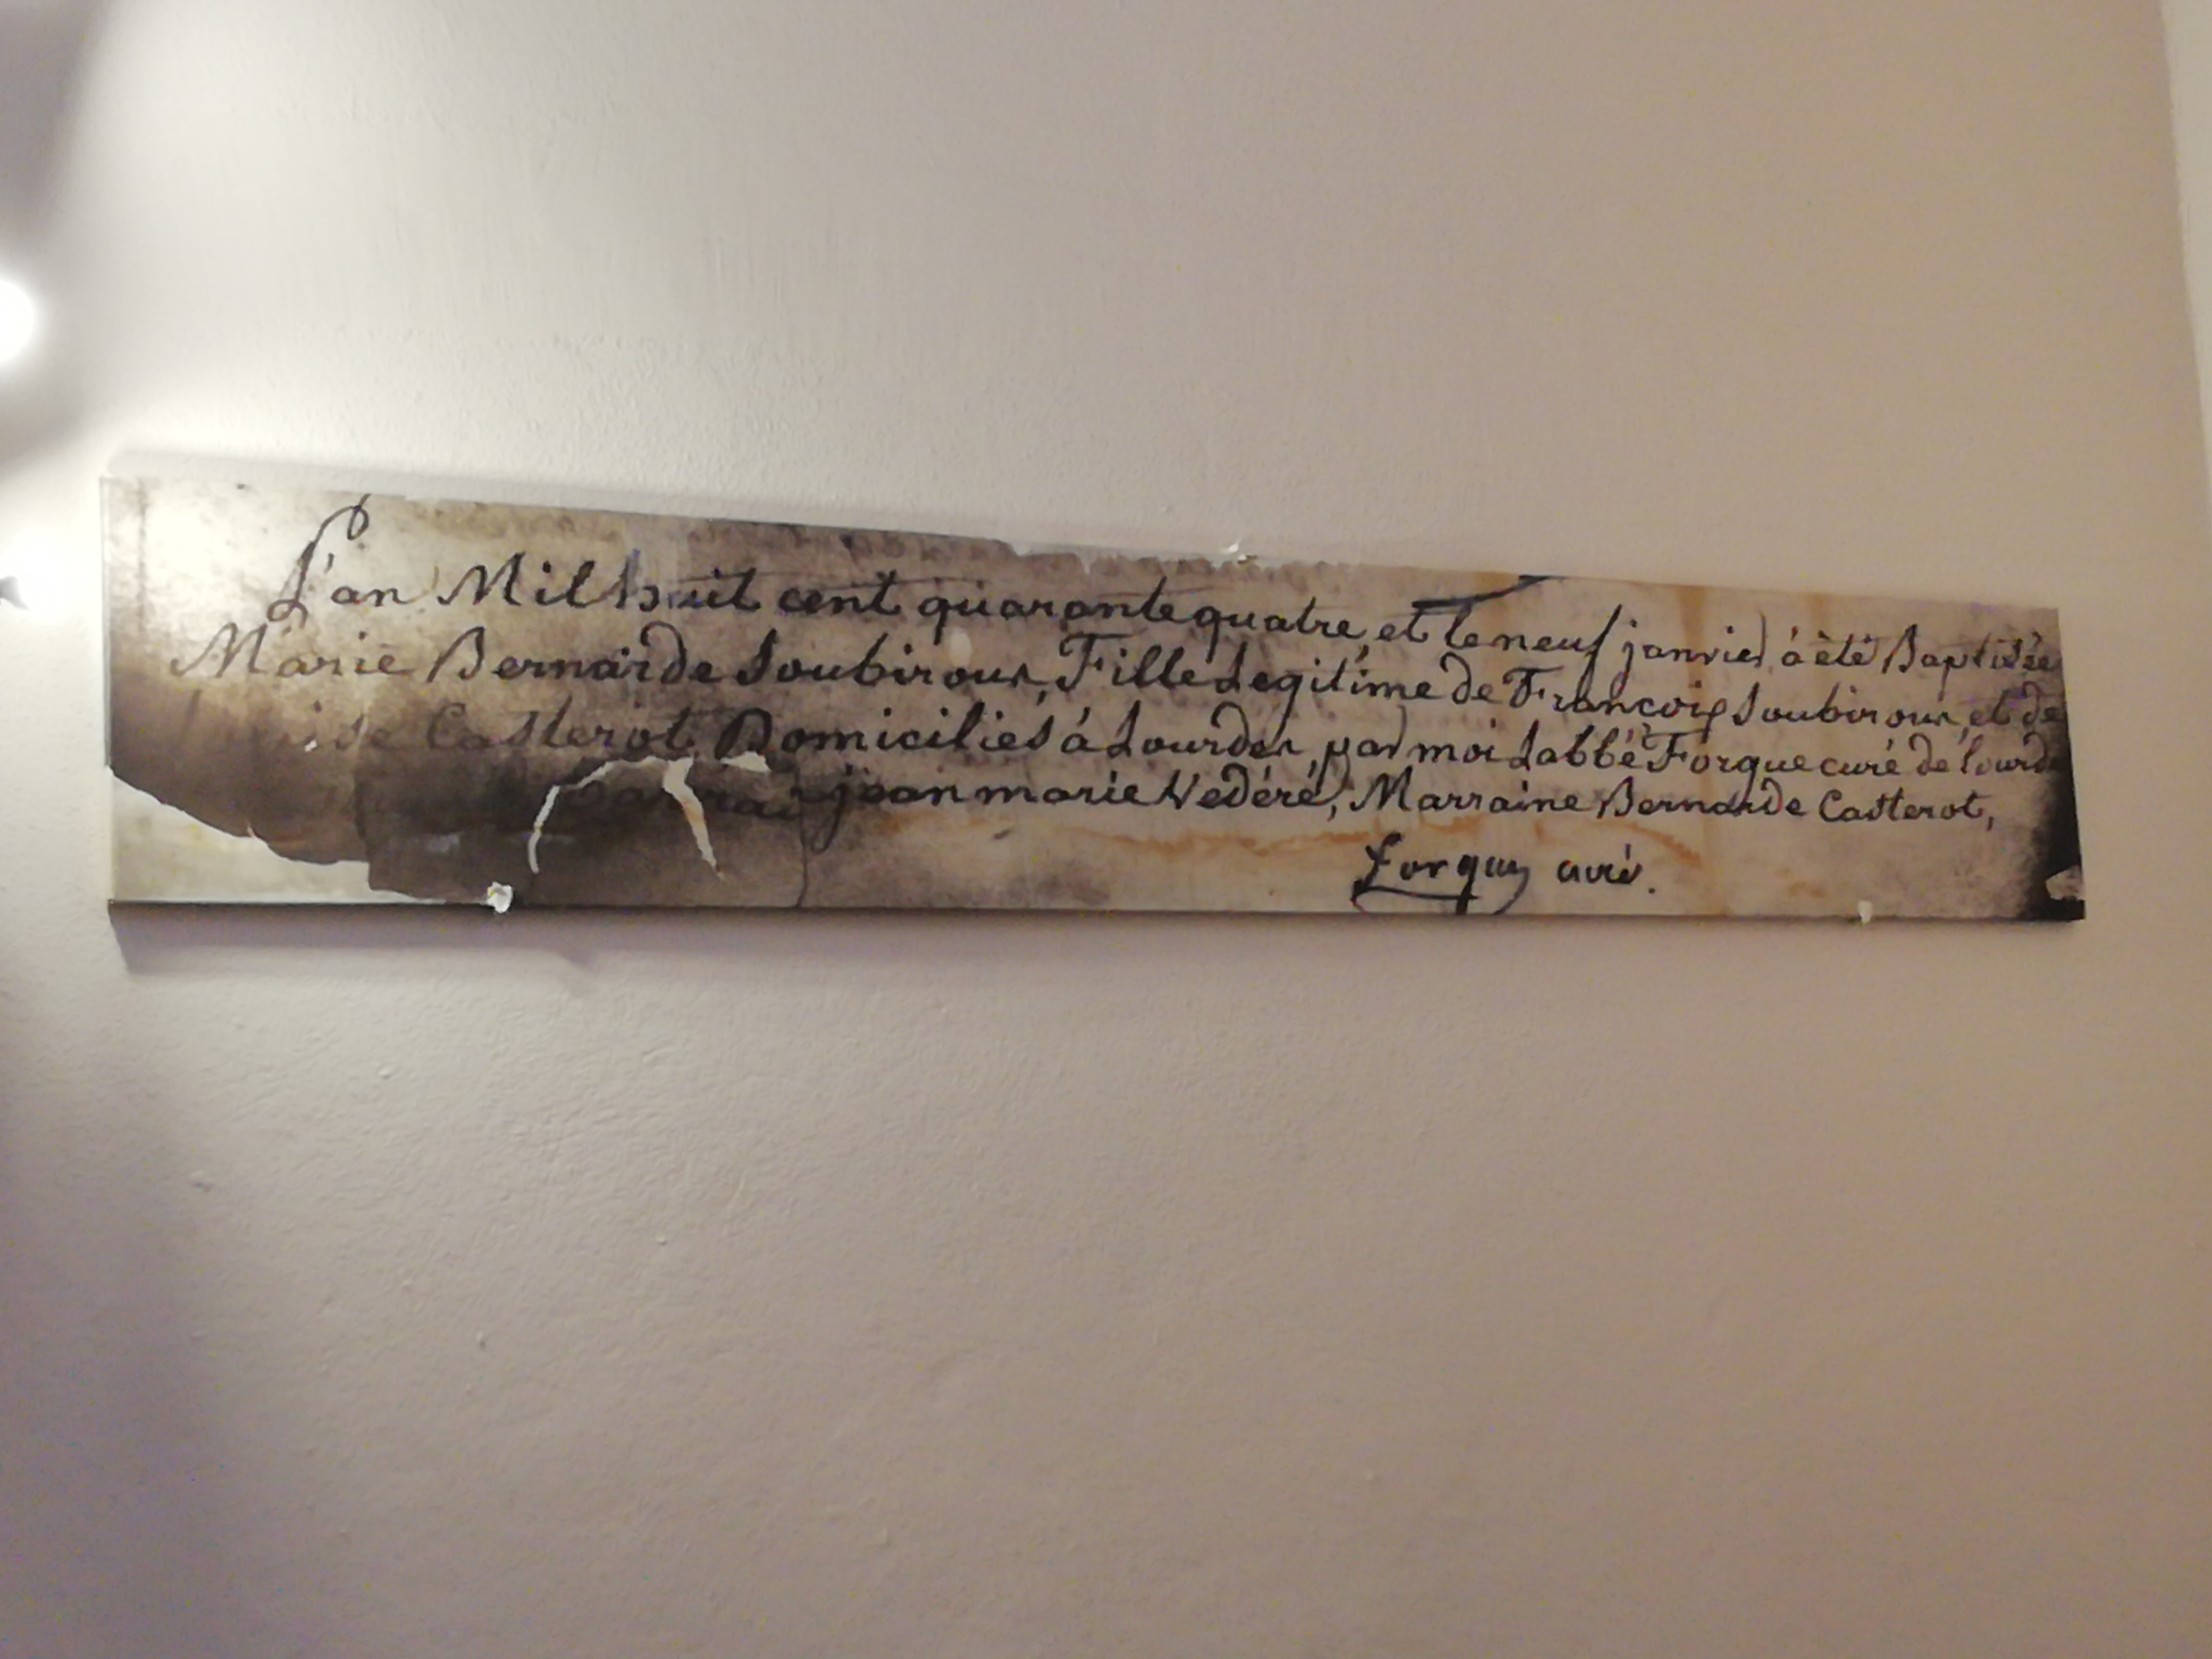 L'an Mil huit cent quarante quatre, et le neuf janvier à été Baptisée
Marie Bernarde Soubirous, Fille Legitime de François Soubirous, et de
Casterot Domiciliés à Lourdes, par moi Labbé Forgue curé de lourde
jean marie Védéré, Marraine Bernarde Casterot,
forgues curé.